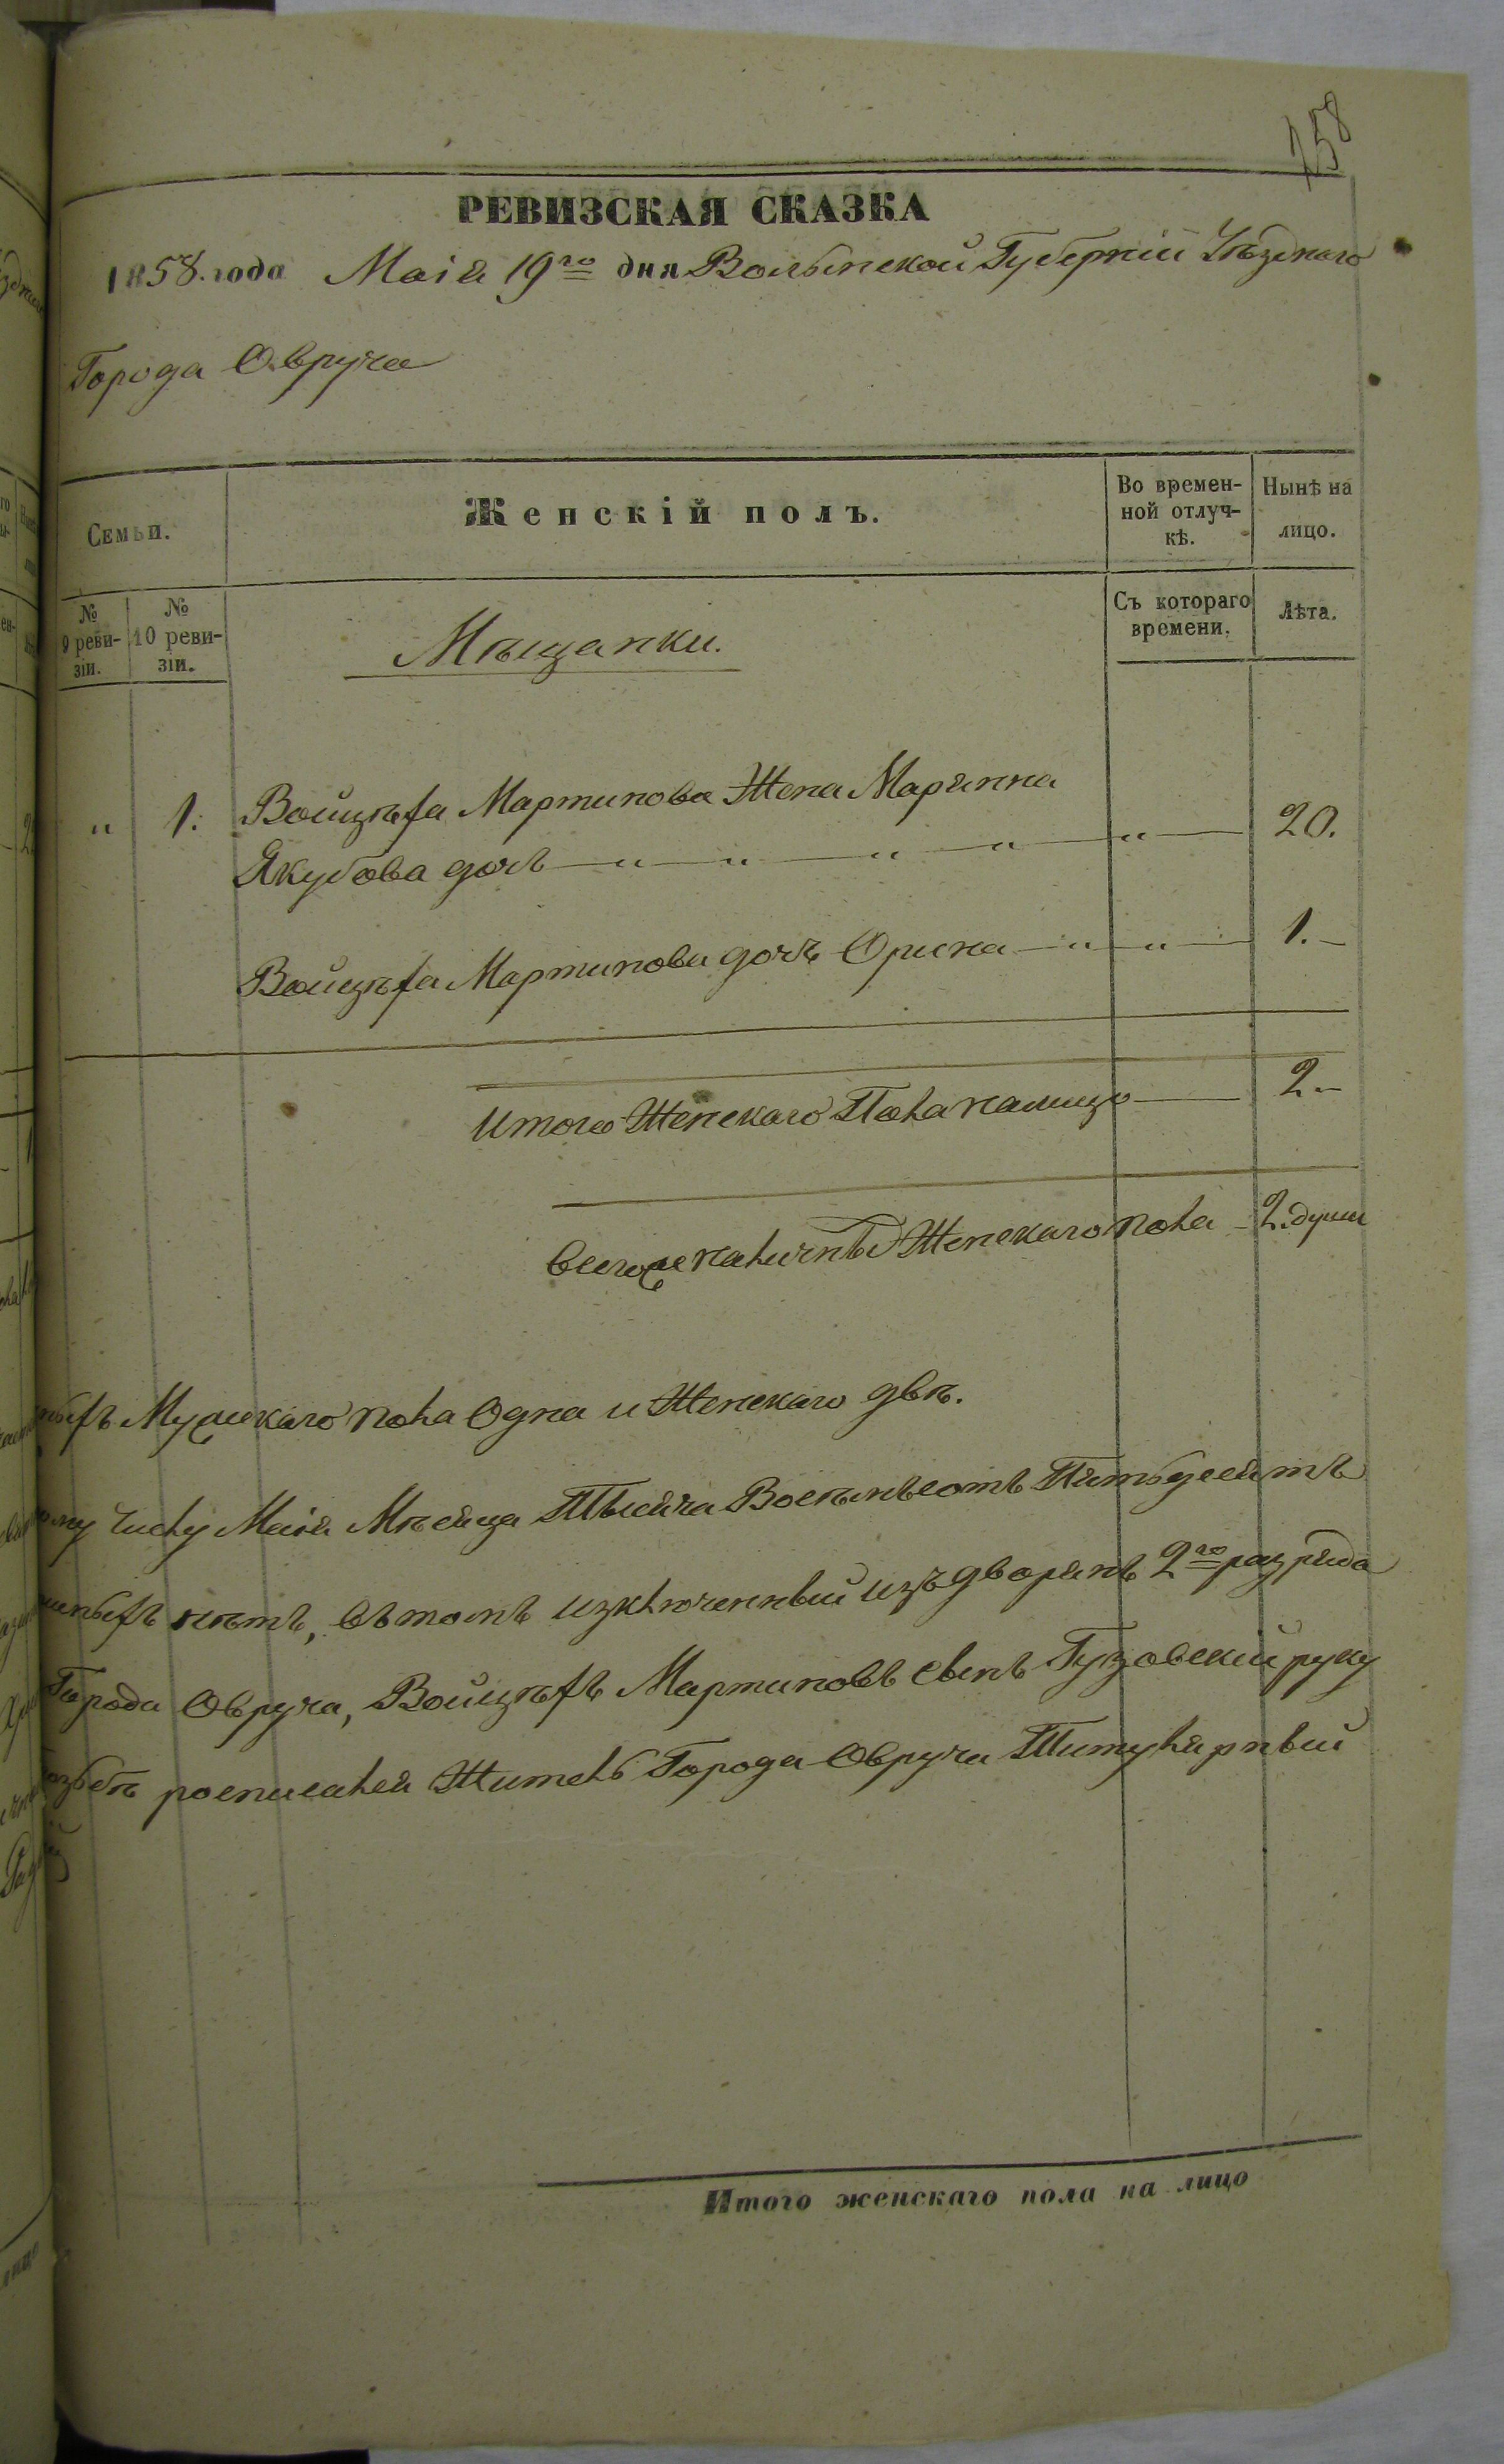 158
РЕВИЗСКАЯ СКАЗКА
1858. года Маія 19го дня Волынской Губерніи Уѣзднаго
Города Овруча
Семьи.
Женскій полъ.
Во времен-
ной отлуч-
кѣ.
Нынѣ на
лицо.
№
9 реви-
зіи.
№
10 реви-
зіи.
Мѣщанки.
Съ котораго
времени.
Лѣта.
" 1. Войцѣха Мартинова Жена Марянна
Якубова дочь — " — " — " — " — " — 20.
Войцѣха Мартинова дочь Орина — " — " — 1. —
Итого Женскаго Пола налицо — 2. —
Всего же наличнъ Женскаго пола — 2. души
ныхъ Мужскаго пола Одна и Женскаго двѣ.
числу Маія Мѣсяца Тысяча Восѣмьсотъ Пятьдесятъ
нѣтъ, въ томъ изключенный изъ дворянъ 2го разряда
Города Овруча, Войцѣхъ Мартиновъ сынъ Гузовскій руку
росписался Житель Города Овруча Титулярный
Итого женскаго пола на лицо